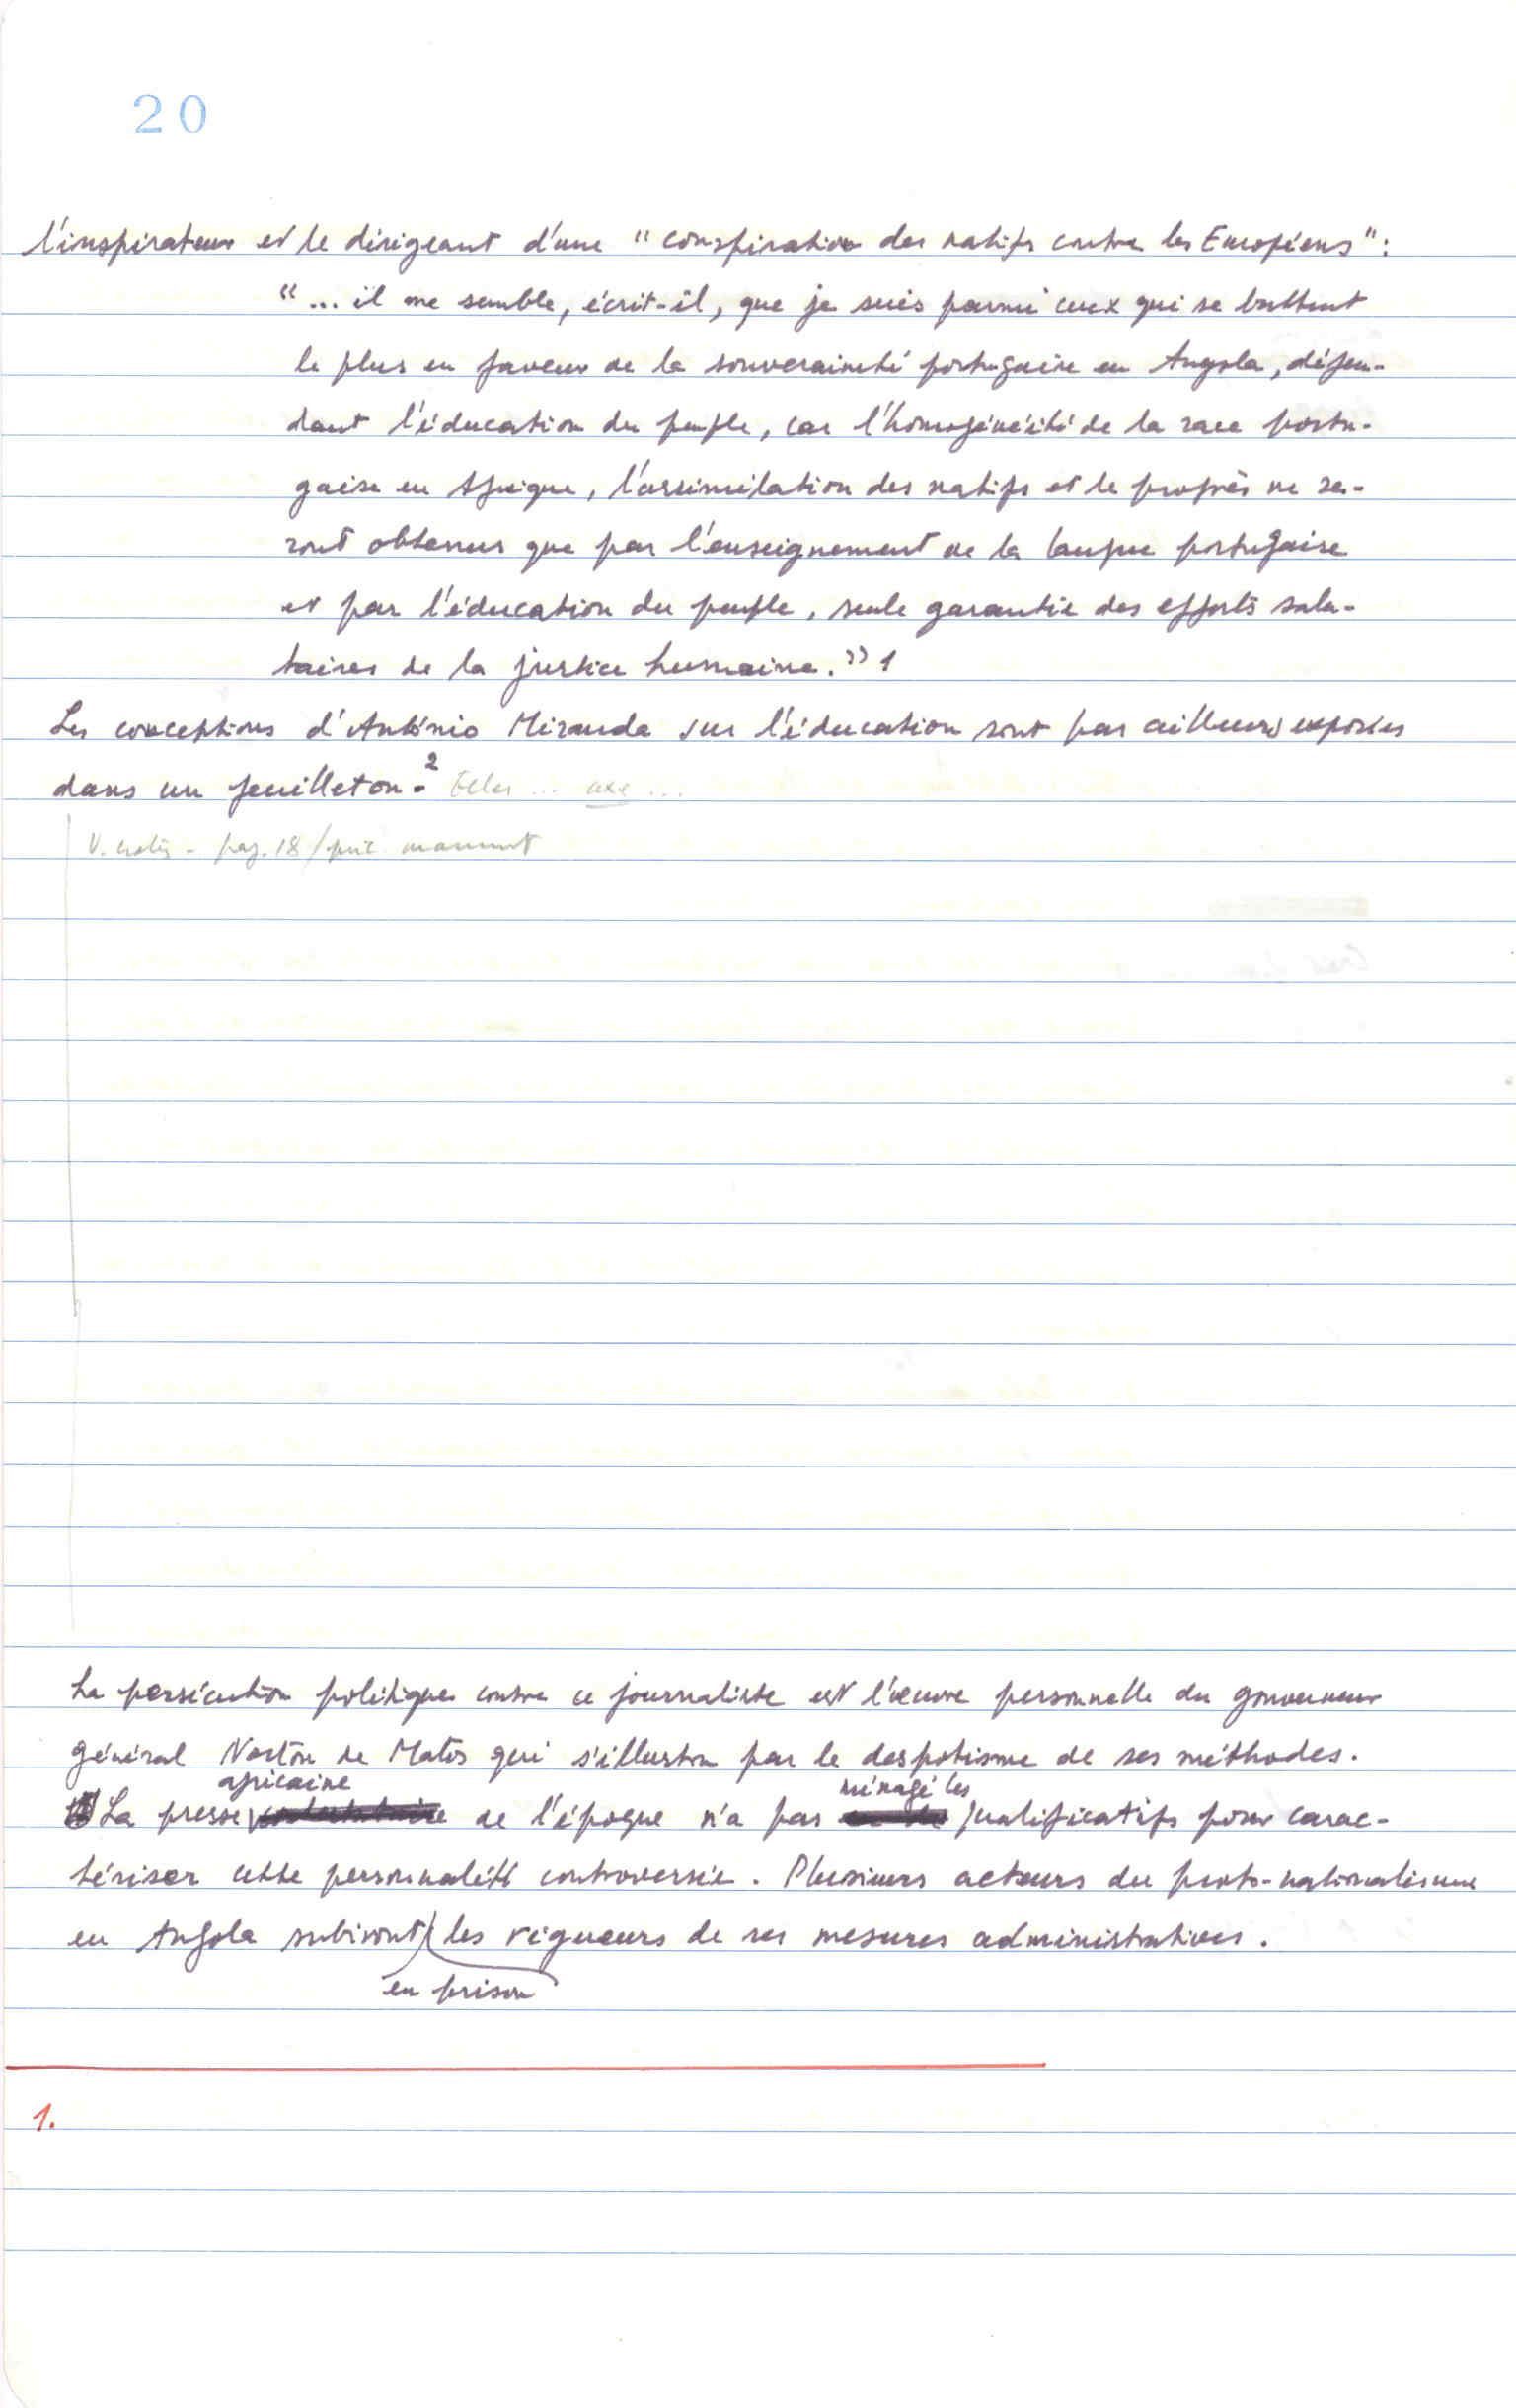 20
l'inspirateur et le dirigeant d'une "conspiration des natifs contre les Européens":
"... il me semble, écrit-il, que je suis parmi ceux qui se battent
le plus en faveur de la souveraineté portugaise en Angola, défen-
dant l'éducation du peuple, car l'homogénéité de la race portu-
gaise en Afrique, l'assimilation des natifs et le progrès ne se-
ront obtenus que par l'enseignement de la langue portugaise
et par l'éducation du peuple, seule garantie des efforts salu-
taires de la justice humaine." 1
Les conceptions d'António Miranda sur l'éducation sont par ailleurs exposées
dans un feuilleton.2 Elles ... axe ...
V. - pag. 18 /
La persécution politique contre ce journaliste est l'œuvre personnelle du gouverneur
général Norton de Matos qui s'illustra par le despotisme de ses méthodes.
africaine ménagé les
La presse de l'époque n'a pas qualificatifs pour carac-
tériser cette personnalité controversée. Plusieurs acteurs du proto-nationalisme
en Angola subiront les rigueurs de ses mesures administratives.
en prison
1.